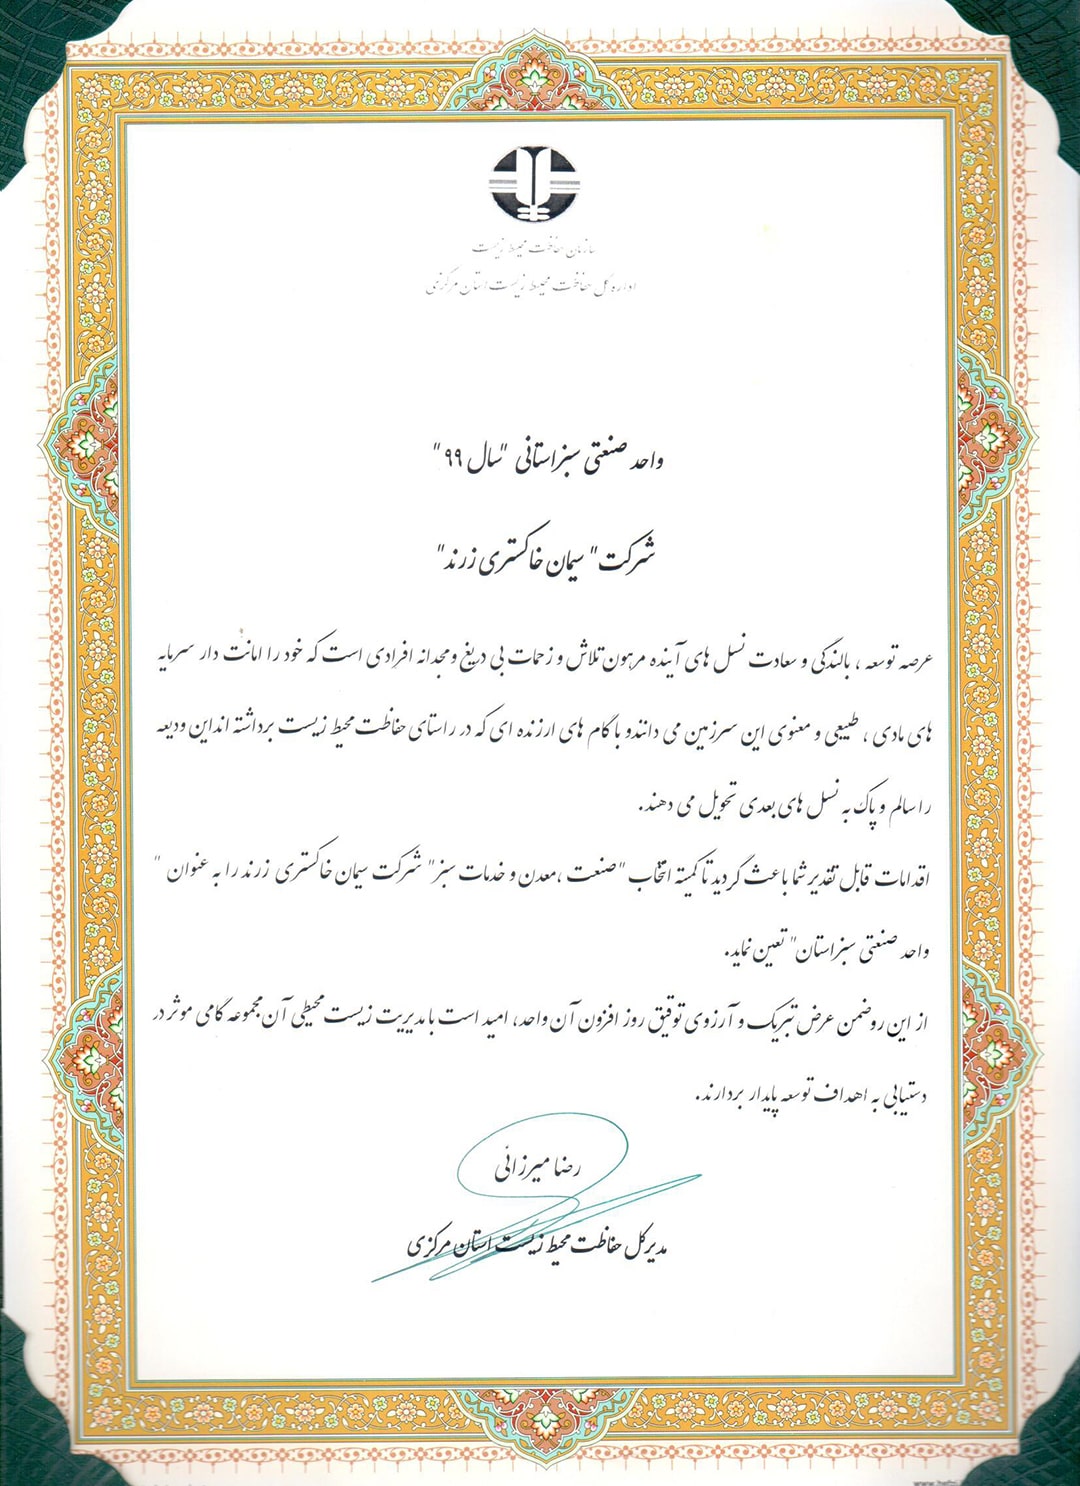 سازمان حفاظت محیط زیست
اداره کل حفاظت محیط زیست استان مرکزی
واحد صنعتی سبز استانی "سال ۹۹"
شرکت " سیمان خاکستری زرند"
عرصه توسعه ، بالندگی و سعادت نسل های آینده مرهون تلاش و زحمات بی دریغ و مجدانه افرادی است که خود را امانت دار سرمایه
های مادی ، طبیعی و معنوی این سرزمین می دانند و با گام های ارزنده ای که در راستای حفاظت محیط زیست برداشته اند این ودیعه
را سالم و پاک به نسل های بعدی تحویل می دهند.
اقدامات قابل تقدیر شما باعث گردید تا کمیته انتخاب "صنعت ، معدن و خدمات سبز" شرکت سیمان خاکستری زرند را به عنوان "
واحد صنعتی سبز استان" تعین نماید.
از این رو ضمن عرض تبریک و آرزوی توفیق روز افزون آن واحد، امید است با مدیریت زیست محیطی آن مجموعه گامی موثر در
دستیابی به اهداف توسعه پایدار بردارند.
رضا میرزائی
مدیر کل حفاظت محیط زیست استان مرکزی